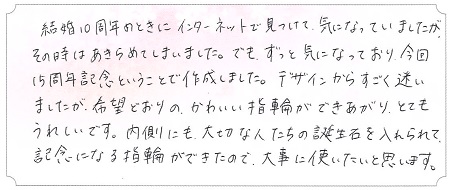 結婚10周年のときにインターネットで見つけて、気になっていましたが、
その時はあきらめてしまいました。でも、ずっと気になっており、今回
15周年記念ということで作成しました。デザインからすごく迷い
ましたが、希望どおりの、かわいい指輪ができあがり、とても
うれしいです。内側にも、大切な人たちの誕生石を入れられて、
記念になる指輪ができたので、大事に使いたいと思います。